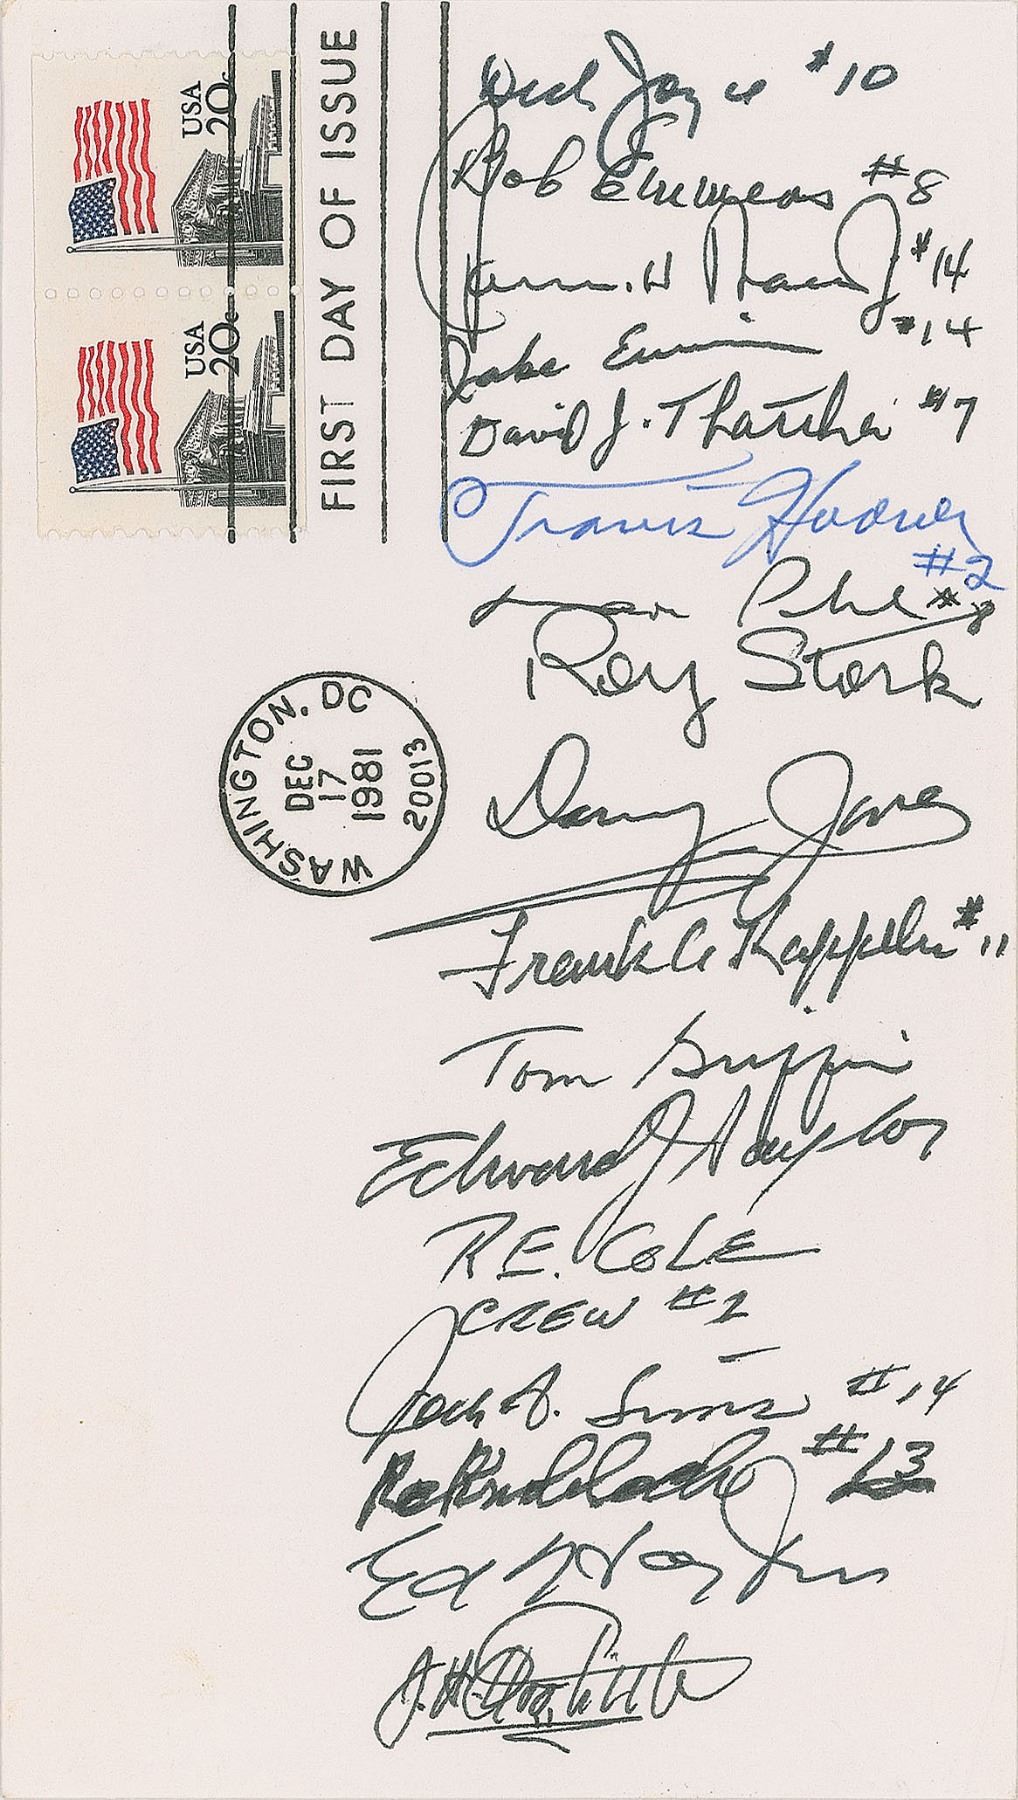 USA
20c
USA
20c
FIRST DAY OF ISSUE
WASHINGTON, DC
DEC
17
1981
20013
Dick Joyce #10
Bob Emmens #8
#14
Jake #14
David J. Thatcher #7
Travis Hoover
#2
Roy Stork
Davy Jones
Frank A Kappeler #11
Tom Griffin
Edward J Saylor
R.E. COLE
CREW #2
Jack A. Sims #14
#13
Ed Horton
J.H. Doolittle